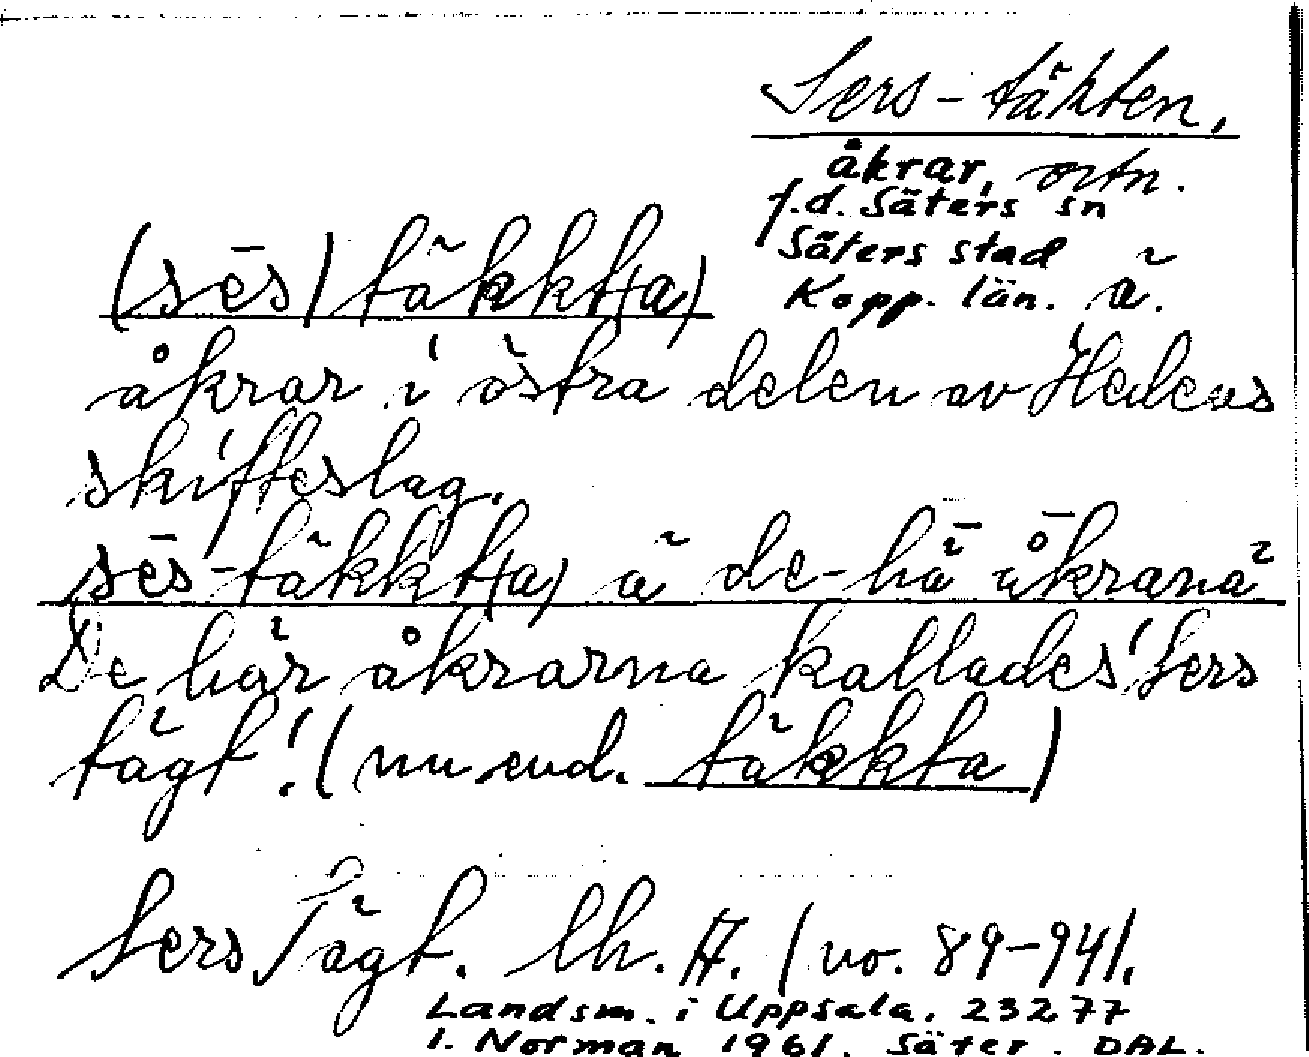 Sers-täkten,
åkrar, ortn.
f.d. Säters sn
Säters stad
Kopp. län. ä.
(sēs) täkkt(a)
åkrar i östra delen av Hedens
skifteslag.
sēs-täkkt(a) ä de-hǟ åkrana
De här åkrarna kallades 'Sers
tägt'. (nu end. täkkta)
Sers Tägt. lh. A. (no. 89-94).
Landsm. i Uppsala. 23277
I. Norman 1961. Säter. DAL.